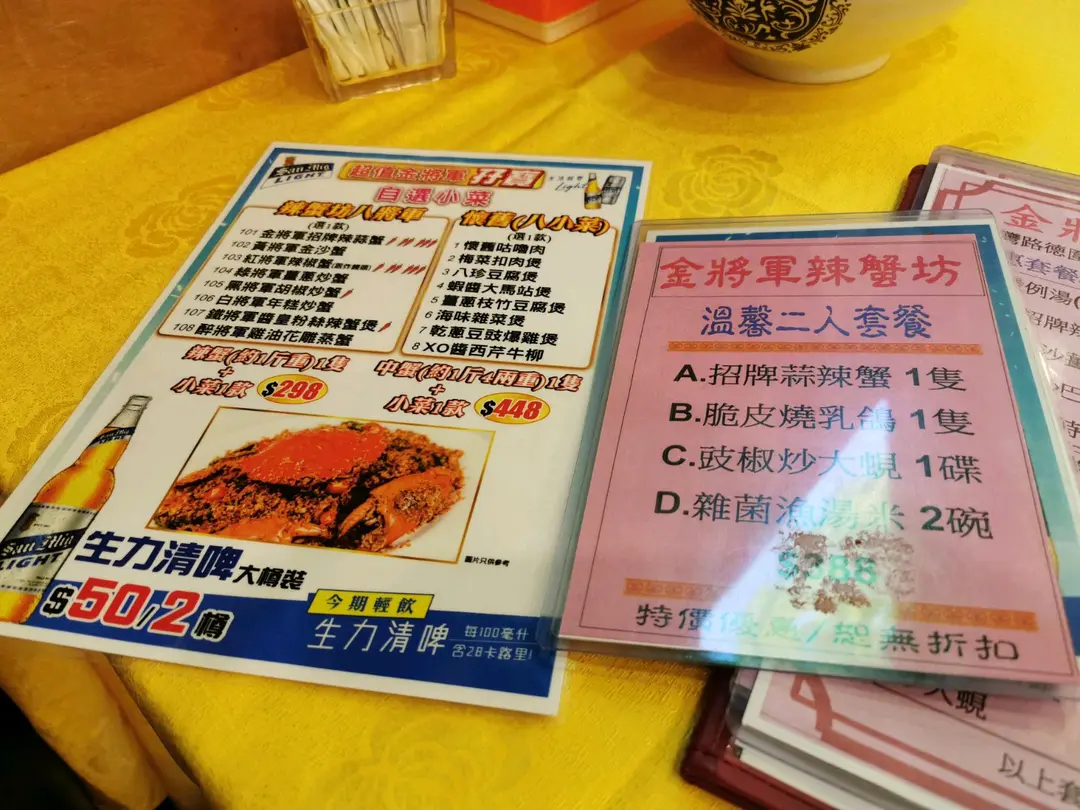 San Mig
LIGHT
超值金將軍孖寶
自選小菜
生活個性
Light
辣蟹坊八將軍
(選1款)
101 金將軍招牌辣蒜蟹
102 黃將軍金沙蟹
103 紅將軍辣椒蟹
104 綠將軍薑蔥炒蟹
105 黑將軍胡椒炒蟹
106 白將軍年糕炒蟹
107 鐵將軍醬皇粉絲辣蟹煲
108 醉將軍雞油花雕蒸蟹
懷舊(八小菜)
(選1款)
1 懷舊咕嚕肉
2 梅菜扣肉煲
3 八珍豆腐煲
4 蝦醬大馬站煲
5 薑蔥枝竹豆腐煲
6 海味雜菜煲
7 乾蔥豆豉爆雞煲
8 XO醬西芹牛柳
辣蟹(約1斤重)1隻
+
小菜1款 $298
中蟹(約1斤4兩重)1隻
+
小菜1款 $448
圖片只供參考
San Mig
LIGHT
生力清啤大樽裝
$50/2樽
今期輕飲
生力清啤
每100毫升
含28卡路里!
金將軍辣蟹坊
溫馨二人套餐
A.招牌蒜辣蟹 1隻
B.脆皮燒乳鴿 1隻
C.豉椒炒大蜆 1碟
D.雜菌漁湯米 2碗
特價優惠/恕無折扣
金將
灣路德
套餐
例湯
招牌辣
以上套